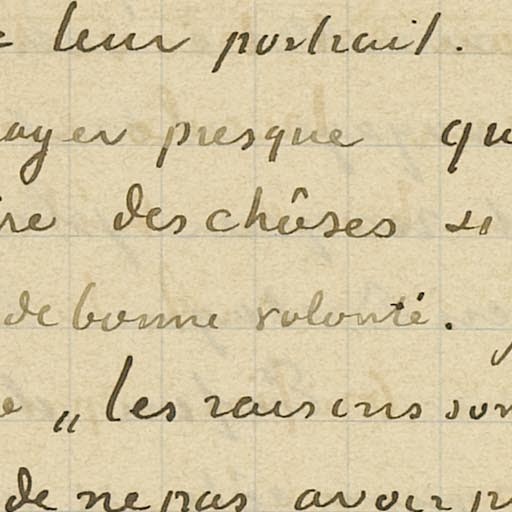 leur portrait.
ayer presque qu
re des chôses si
de bonne volonté.
„ les raisons son
de ne pas avoir p